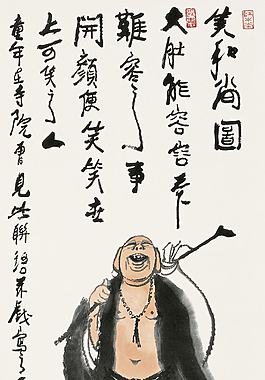 笑和尚圖
大肚能容容天下
難容之事
開顏便笑笑世
上可笑之人
童年在寺院曾見此聯